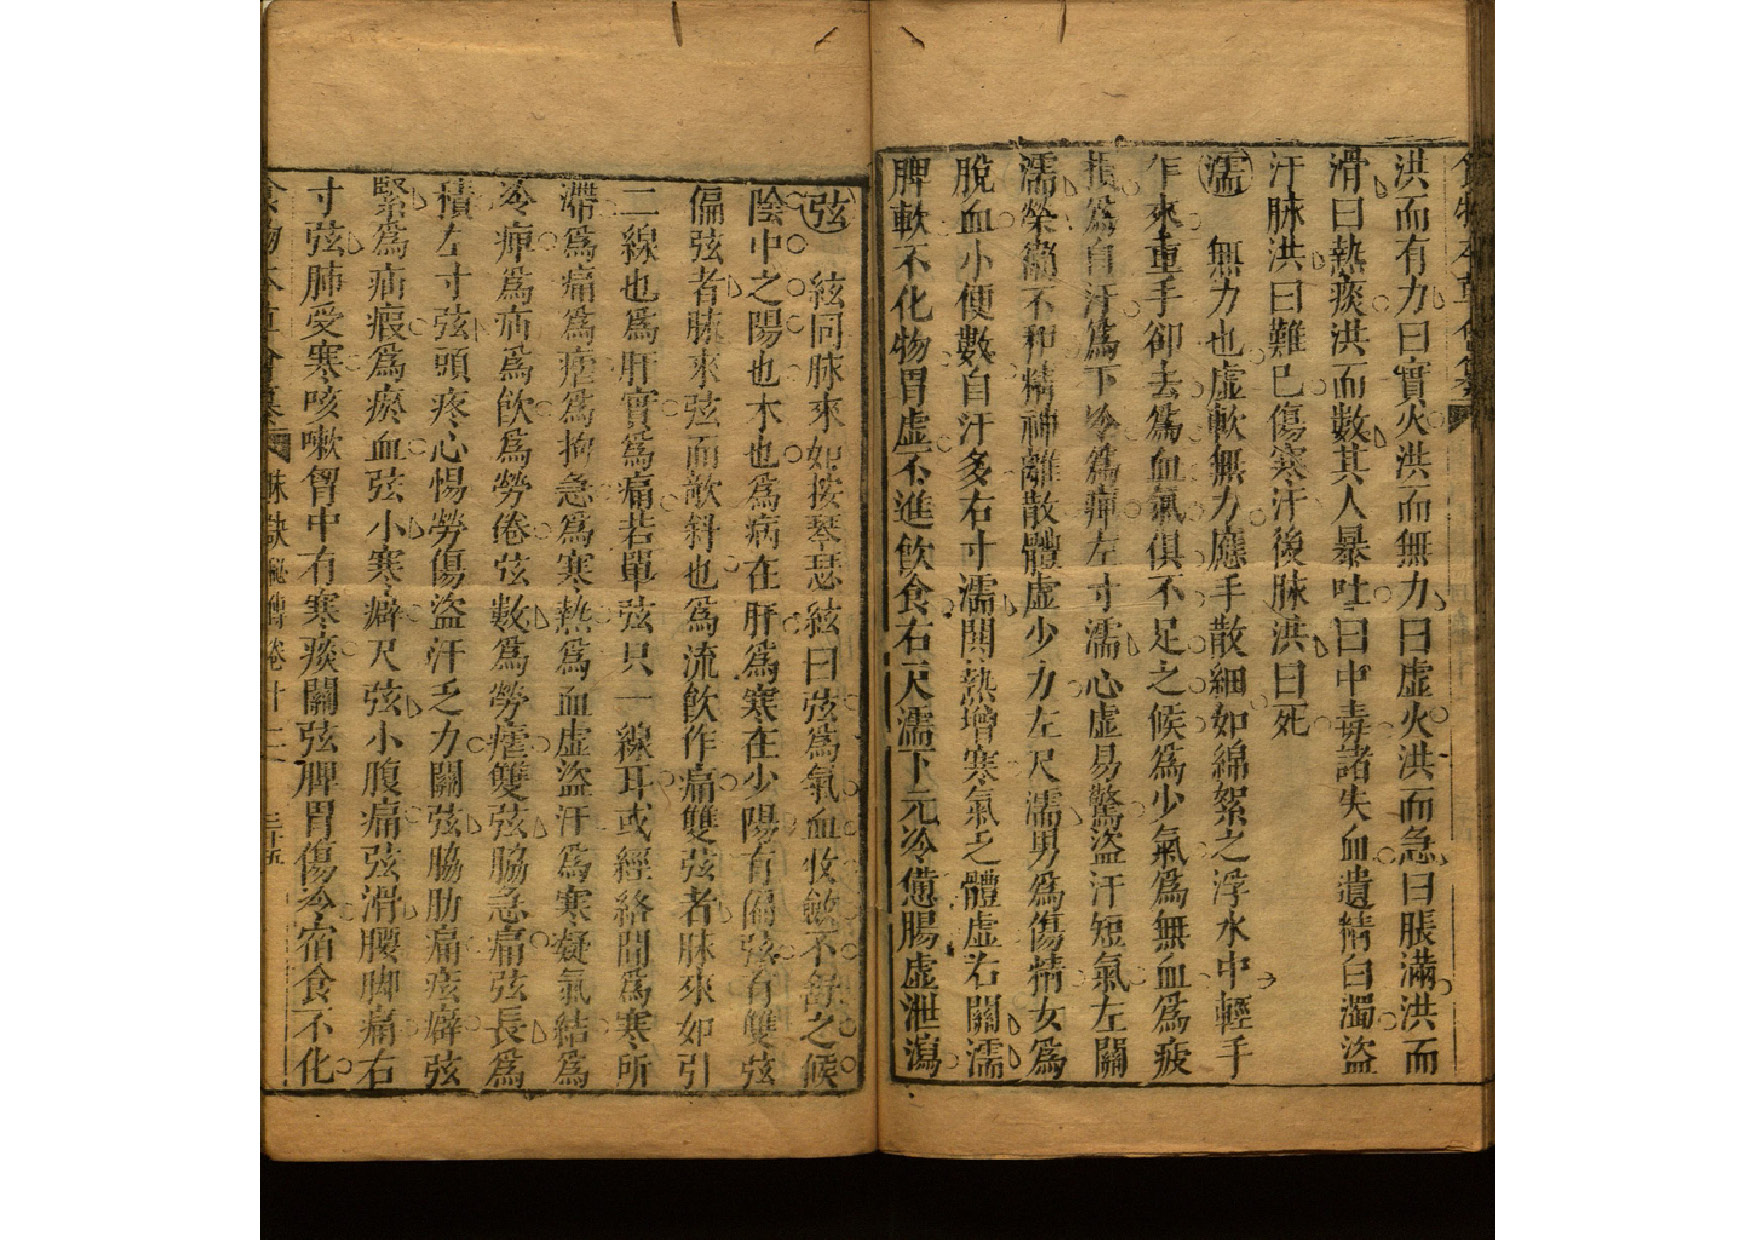 洪而有力曰實火洪而無力曰虛火洪而急曰脹滿洪而
滑曰熱痰洪而數其人暴吐曰中毒諸失血遺精白濁盜
汗脉洪曰難已傷寒汗後脉洪曰死
濡　無力也虛軟無力應手散細如綿絮之浮水中輕手
乍來重手卻去爲血氣俱不足之候爲少氣爲無血爲疲
損爲自汗爲下冷爲痺左寸濡心虛易驚盜汗短氣左關
濡榮衞不和精神離散體虛少力左尺濡男爲傷精女爲
脫血小便數自汗多右寸濡関熱增寒氣乏體虛右關濡
脾軟不化物胃虛不進飲食右尺濡下元冷憊腸虛泄瀉
弦　絃同脉來如按琴瑟絃曰弦爲氣血收斂不舒之候
陰中之陽也木也爲病在肝爲寒在少陽有偏弦有雙弦
偏弦者脉來弦而欹斜也爲流飲作痛雙弦者脉來如引
二線也爲肝實爲痛若單弦只一線耳或經絡間爲寒所
滯爲痛爲瘧爲拘急爲寒熱爲血虛盜汗爲寒凝氣結爲
冷痺爲疝爲飲爲勞倦弦數爲勞瘧雙弦脇急痛弦長爲
積左寸弦頭疼心惕勞傷盜汗乏力關弦脇肋痛痃癖弦
緊爲疝瘕爲瘀血弦小寒癖尺弦小腹痛弦滑腰脚痛右
寸弦肺受寒咳嗽胷中有寒痰關弦脾胃傷冷宿食不化
食物本草會纂　脉訣秘傳卷十二　三十五